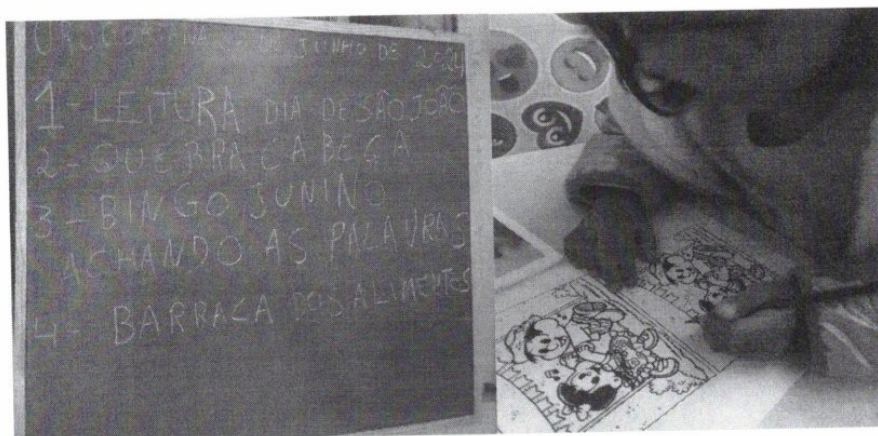 JUNHO DE 2024
1 - LEITURA DIA DE SÃO JOÃO
2 - QUEBRA CABEÇA
3 - BINGO JUNINO
ACHANDO AS PALAVRAS
4 - BARRACA DOS ALIMENTOS